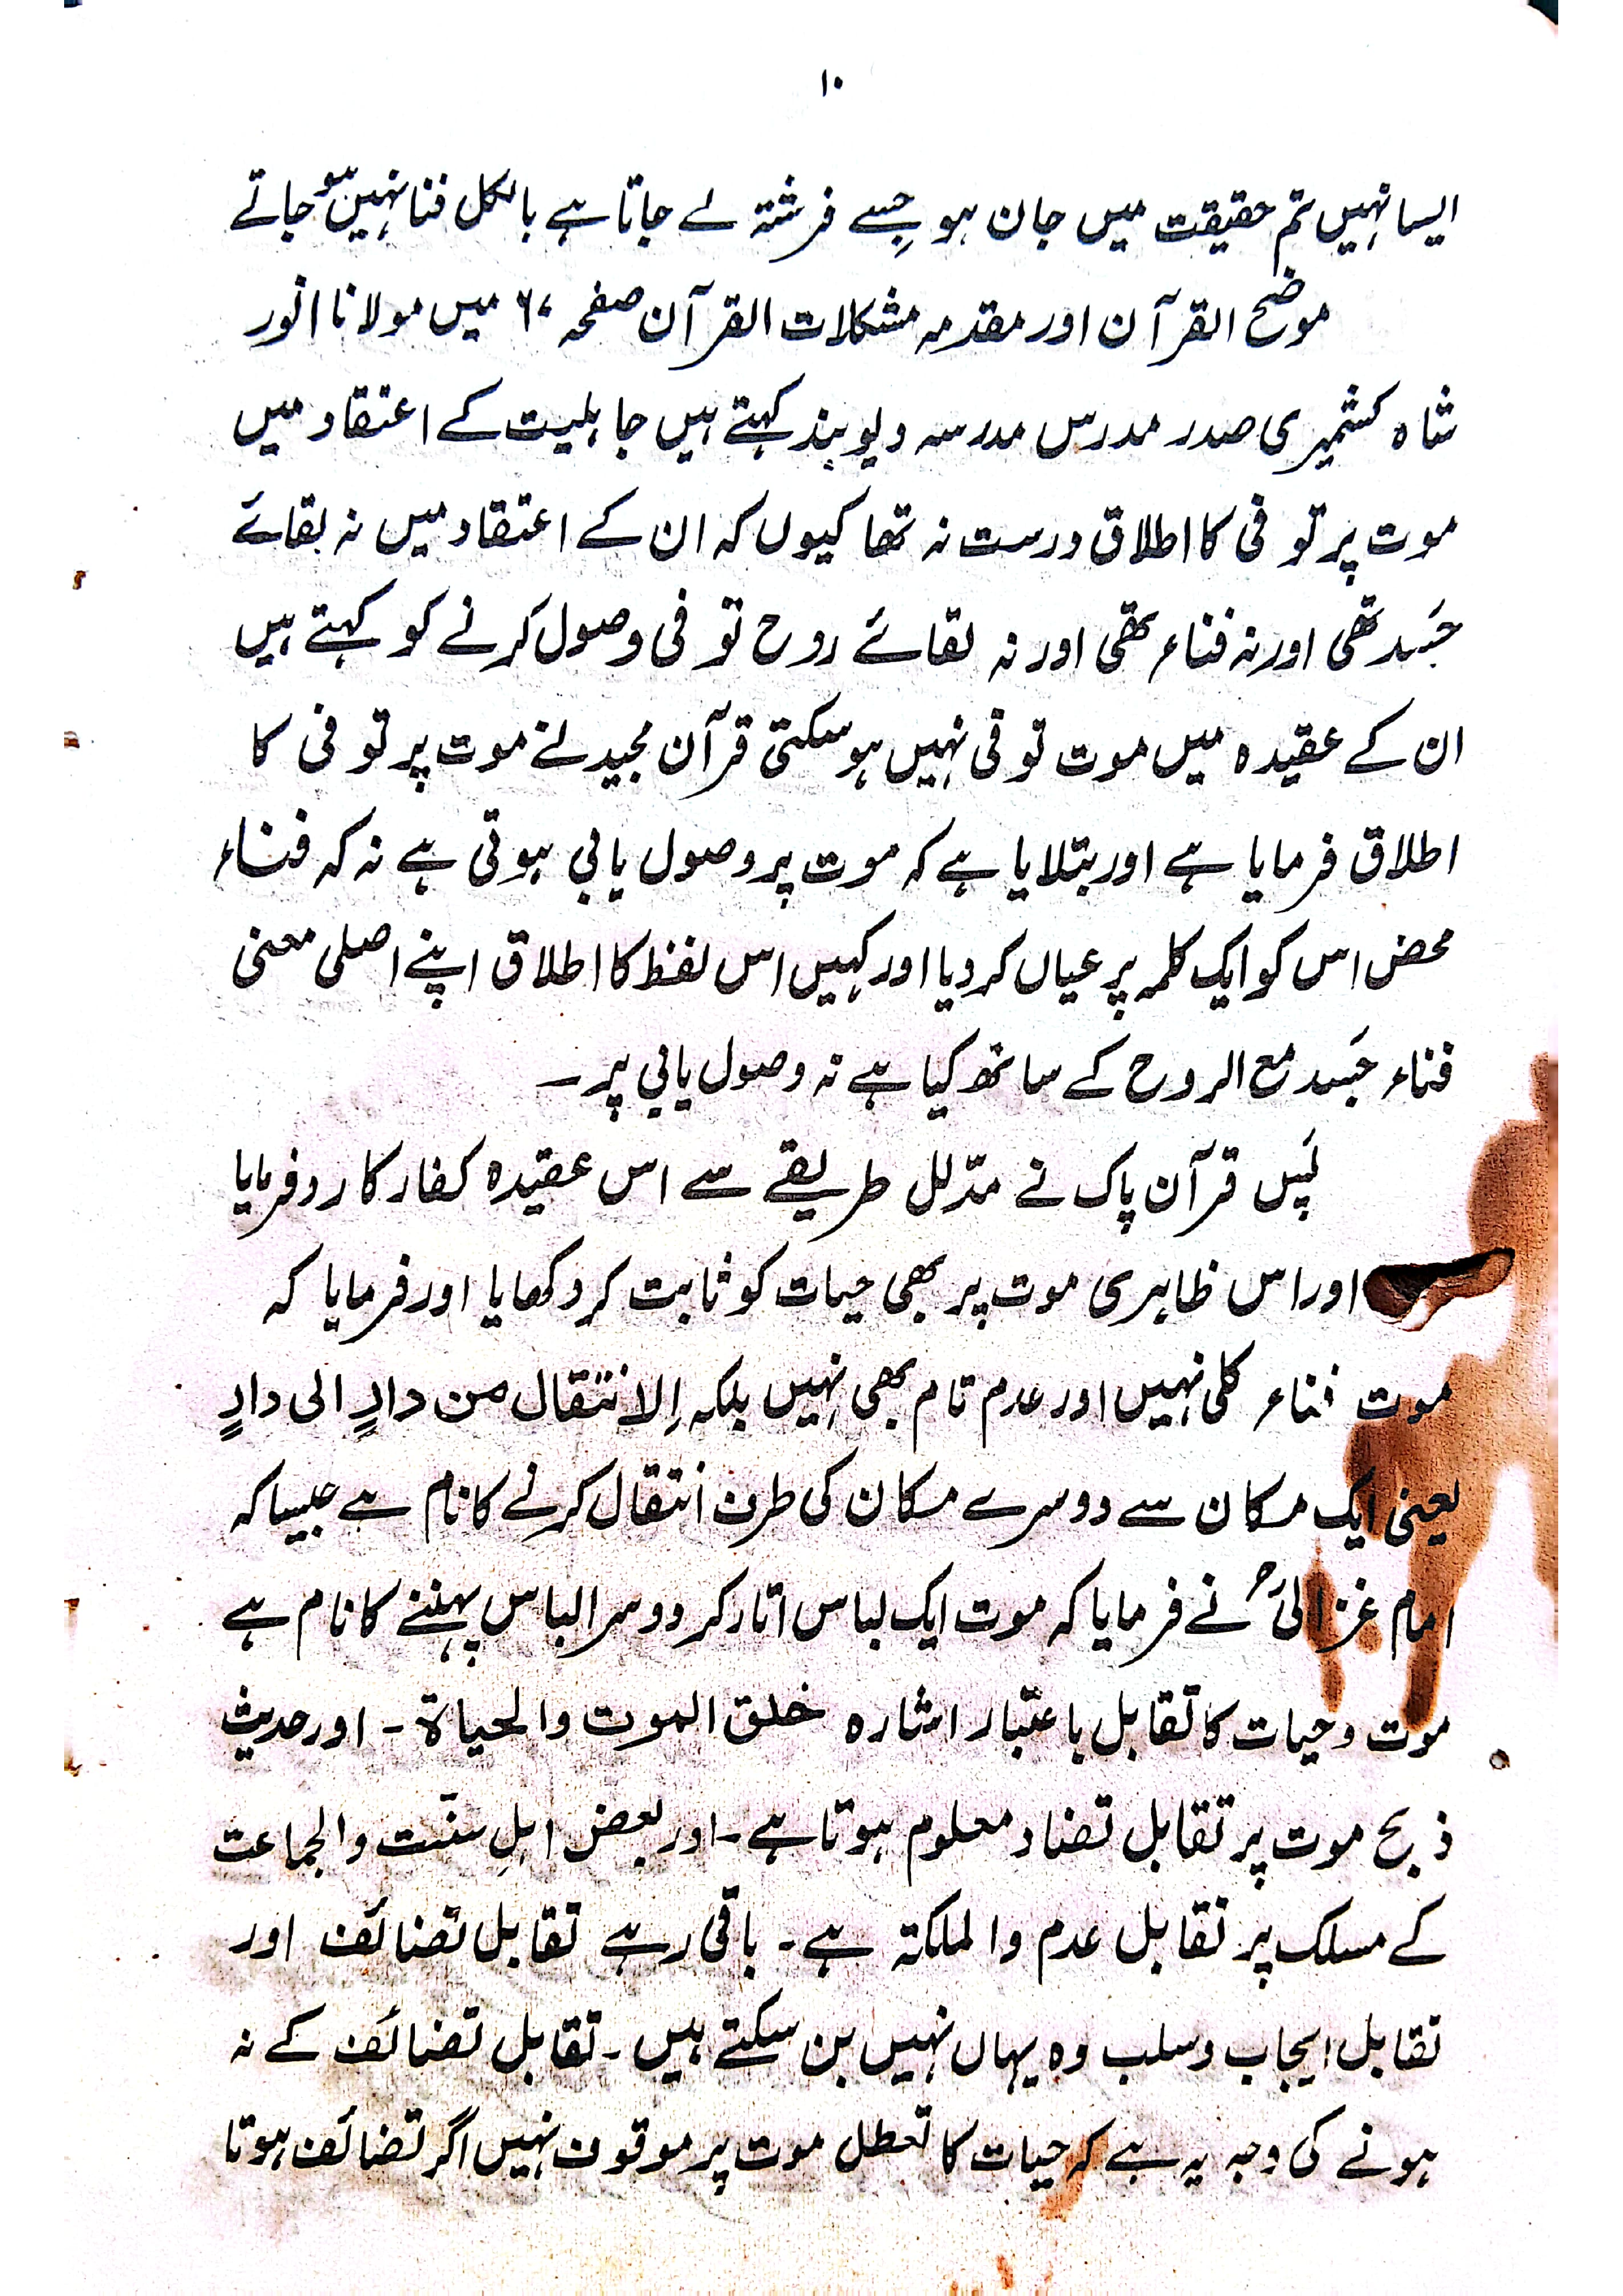 ۱۰
ایسا نہیں تم حقیقت میں جان ہو جسے فرشتہ لے جاتا ہے بالکل فنا نہیں ہو جاتے
موضح القرآن اور مقدمہ مشکلات القرآن صفحہ ۶۰ میں مولانا انور
شاہ کشمیری صدر مدرس مدرسہ دیوبند کہتے ہیں جاہلیت کے اعتقاد میں
موت پر توفی کا اطلاق درست نہ تھا کیوں کہ ان کے اعتقاد میں نہ بقائے
جَسد تھی اور نہ فناء تھی اور نہ لقائے روح توفی وصول کرنے کو کہتے ہیں
ان کے عقیدہ میں موت توفی نہیں ہو سکتی قرآن مجید نے موت پر توفی کا
اطلاق فرمایا ہے اور بتلایا ہے کہ موت پر وصول یابی ہوتی ہے نہ کہ فناء
محض اس کو ایک کلمہ پر عیاں کر دیا اور کہیں اس لفظ کا اطلاق اپنے اصلی معنی
فناء جَسد مع الروح کے ساتھ کیا ہے نہ وصول یابی پر ۔
پَس قرآن پاک نے مدّلل طریقے سے اس عقیدہ کفار کا رد فرمایا
اور اس ظاہری موت پر بھی حیات کو ثابت کر دکھایا اور فرمایا کہ
موت فناء کلی نہیں اور عدم تام بھی نہیں بلکہ اِلانتقال من دارٍ الی دارٍ
یعنی ایک مکان سے دوسرے مکان کی طرف انتقال کرنے کا نام ہے جیسا کہ
امام غزالیؒ نے فرمایا کہ موت ایک لباس اتار کر دوسرا لباس پہننے کا نام ہے
موت و حیات کا تقابل با عتبار اشارہ خلق الموت والحیاۃ ۔ اور حدیث
ذبح موت پر تقابل تضاد معلوم ہوتا ہے ۔ اور بعض اہلِ سنّت والجماعت
کے مسلک پر تقابل عدم والملکتہ ہے ۔ باقی رہے تقابل تضائف اور
تقابل ایجاب و سلب وہ یہاں نہیں بن سکتے ہیں ۔ تقابل تضائف کے نہ
ہونے کی وجہ یہ ہے کہ حیات کا تعطل موت پر موقوف نہیں اگر تضائف ہوتا